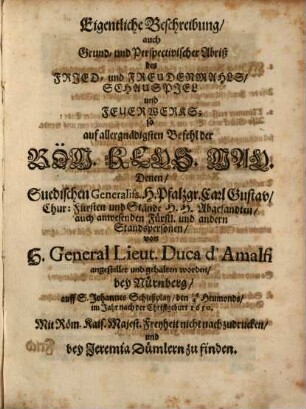 Eigentliche Beschreibung/
auch
Grund- und Perspectivischer Abriß
des
FRIED- und FREUDENMAHLS/
SCHAUSPIEL
und
FEUERWERKS;
so
auf allergnädigsten Befehl der
RÖM. KEYS. MAY.
Denen/
Suedischen Generaliss. H. Pfalzgr. Carl Gustav/
Chur: Fürsten und Stände H. H. Abgesandten/
auch anwesenden Fürstl. und andern
Standspersonen/
von
H. General Lieut. Duca d' Amalfi
angestellet und gehalten worden/
bey Nürnberg/
auff S. Johannes Schießplatz/ den Heumonds/
im Jahr nach der Christgeburt 1650.
Mit Röm. Kais. Majest. Freyheit nicht nachzudrucken/
und
bey Jeremia Dümlern zu finden.